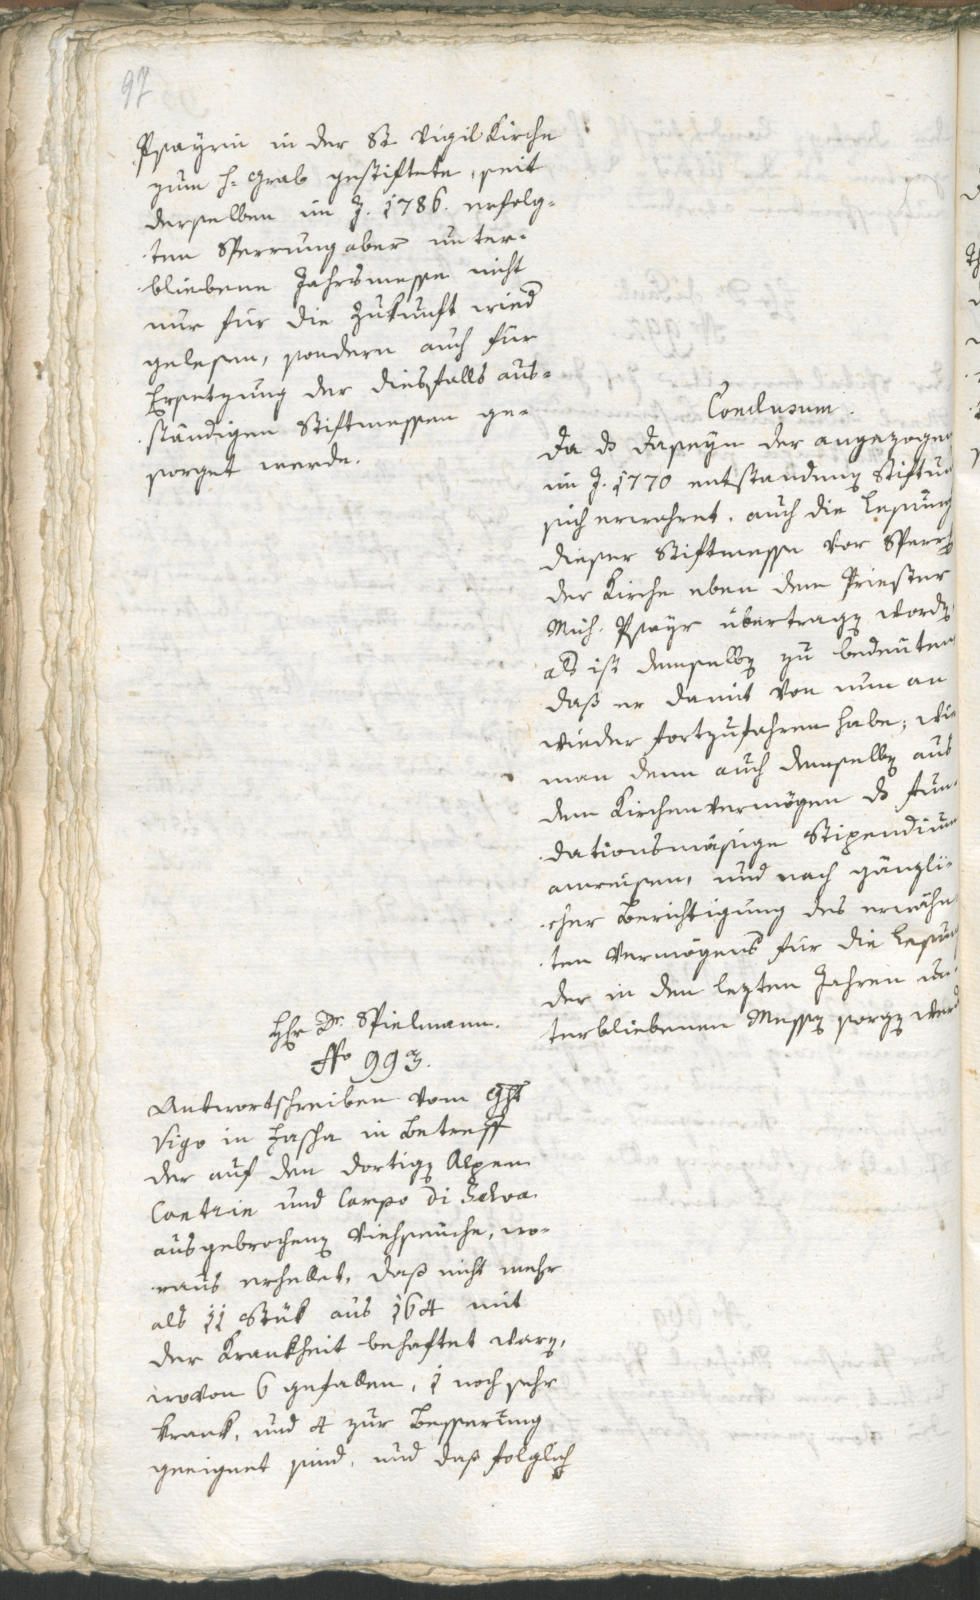 97
Psayrin in der St Vigil Kirche
zum h: Grab gestiftete, seit
derselben im J. 1786. erfolg-
ten Sperrung aber unter-
bliebene Jahrsmesse nicht
nur für die Zukunft wied
gelesen, sondern auch für
Ersetzung der diesfalls aus-
ständigen Stiftmessen ge-
sorget werde.
Conclusum.
Da ds Daseyn der angezogen
im J. 1770 entstanden Stiftun
sich erwahret, auch die Lesung
dieser Stiftmesse vor Sperr
der Kirche eben dem Priester
Mich. Psayr übertragen worden
als ist demselben zu bedeuten
daß er damit von nun an
wieder fortzufahren habe; wie
man denn auch demselben aus
dem Kirchenvermögen ds fun-
dationsmäsige Stipendium
anweisen, und nach gänzli-
cher Berichtigung des erwähn
ten Vermögens für die Lesung
der in den lezten Jahren un-
terbliebenen Messen sorgen werd
Hr Dr. Spielmann.
No 993.
Antwortschreiben vom Ght
Vigo in Fassa in Betreff
der auf den dortigen Alpen
Contrin und Campo di Selva
ausgebrochenen Viehseuche, wo-
raus erhellet, daß nicht mehr
als 11 Stük aus 164 mit
der Krankheit behaftet waren,
wovon 6 gefallen, 1 noch sehr
krank, und 4 zur Besserung
geeignet sind, und daß folglich